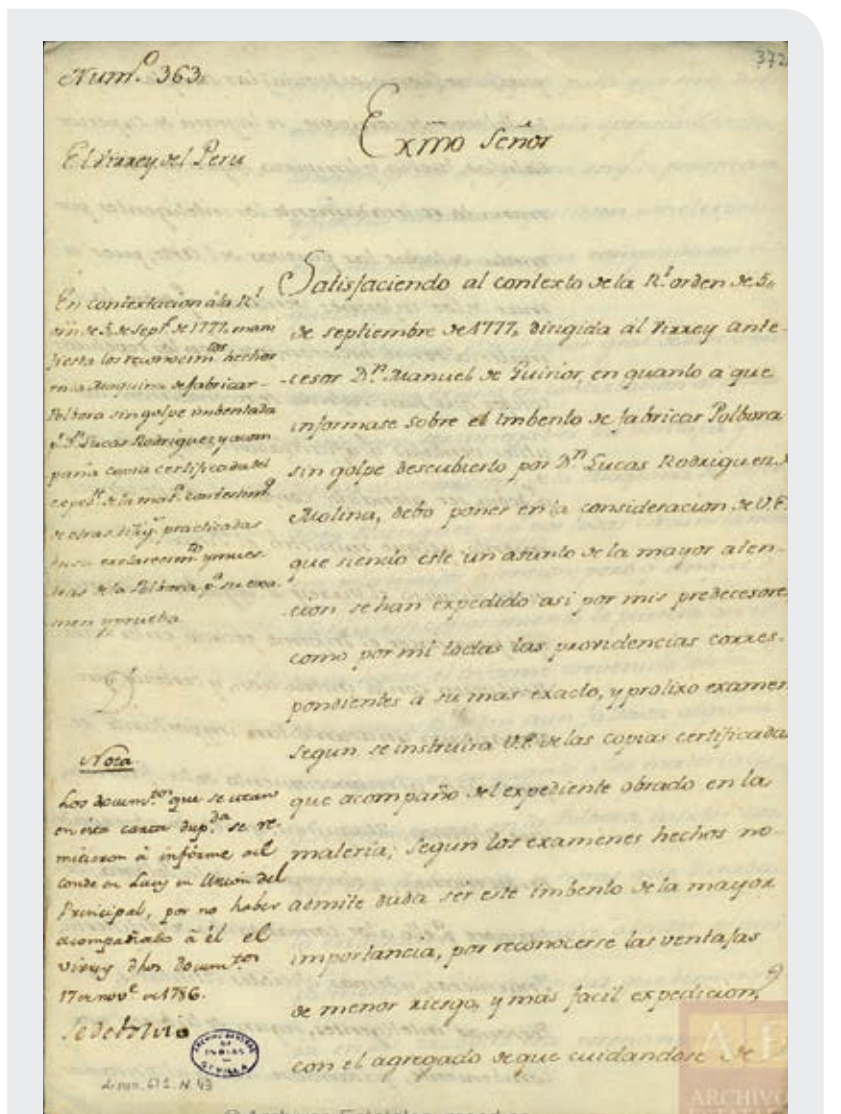 372
Num.º 363.
Exmo Señor
El Virrey del Peru
En contextacion à la Rl
orñ de 5. de Septe. de 1777. mani
fiesta los reconocimtos. hechos
en la Maquina de fabricar
Polbora sin golpe imbentada
pr. Dn. Lucas Rodriguez y acom
paña copia certificada del
expedte. de la mata. con testimo
de otras dilixs. practicadas
en su exclarecimto. y mues-
tras de la Polbora pa. su exa-
men y prueba
Nota
Los documtos. que se citan
en esta carta dupda. se re-
mitieron à informe del
conde de Lacy en Union del
Principal, por no haber
acompañado à él el
virrey dhos. documtos.
17 de nove. de 1786.
Satisfaciendo al contexto de la Rl. orden de 5.
de septiembre de 1777, dirigida al Virrey ante-
cesor Dn. Manuel de Guirior, en quanto a que
informase sobre el imbento de fabricar Polbora
sin golpe descubierto por Dn. Lucas Rodriguez
Molina, debo poner en la consideracion de V.E.
que siendo este un asunto de la mayor aten-
cion se han expedido asi por mis predecesore
como por mi todas las providencias corres-
pondientes a su mas exacto, y prolixo examen
segun se instruira V.E. de las copias certificada
que acompaño del expediente obrado en la
materia; segun los examenes hechos no
admite duda ser este imbento de la mayor
importancia, por reconocerse las ventajas
de menor riesgo, y mas facil expedicion,
con el agregado de que cuidandose de
ARCHIVO GENERAL
DE
INDIAS
SEVILLA
N. 43
ARCHIVO